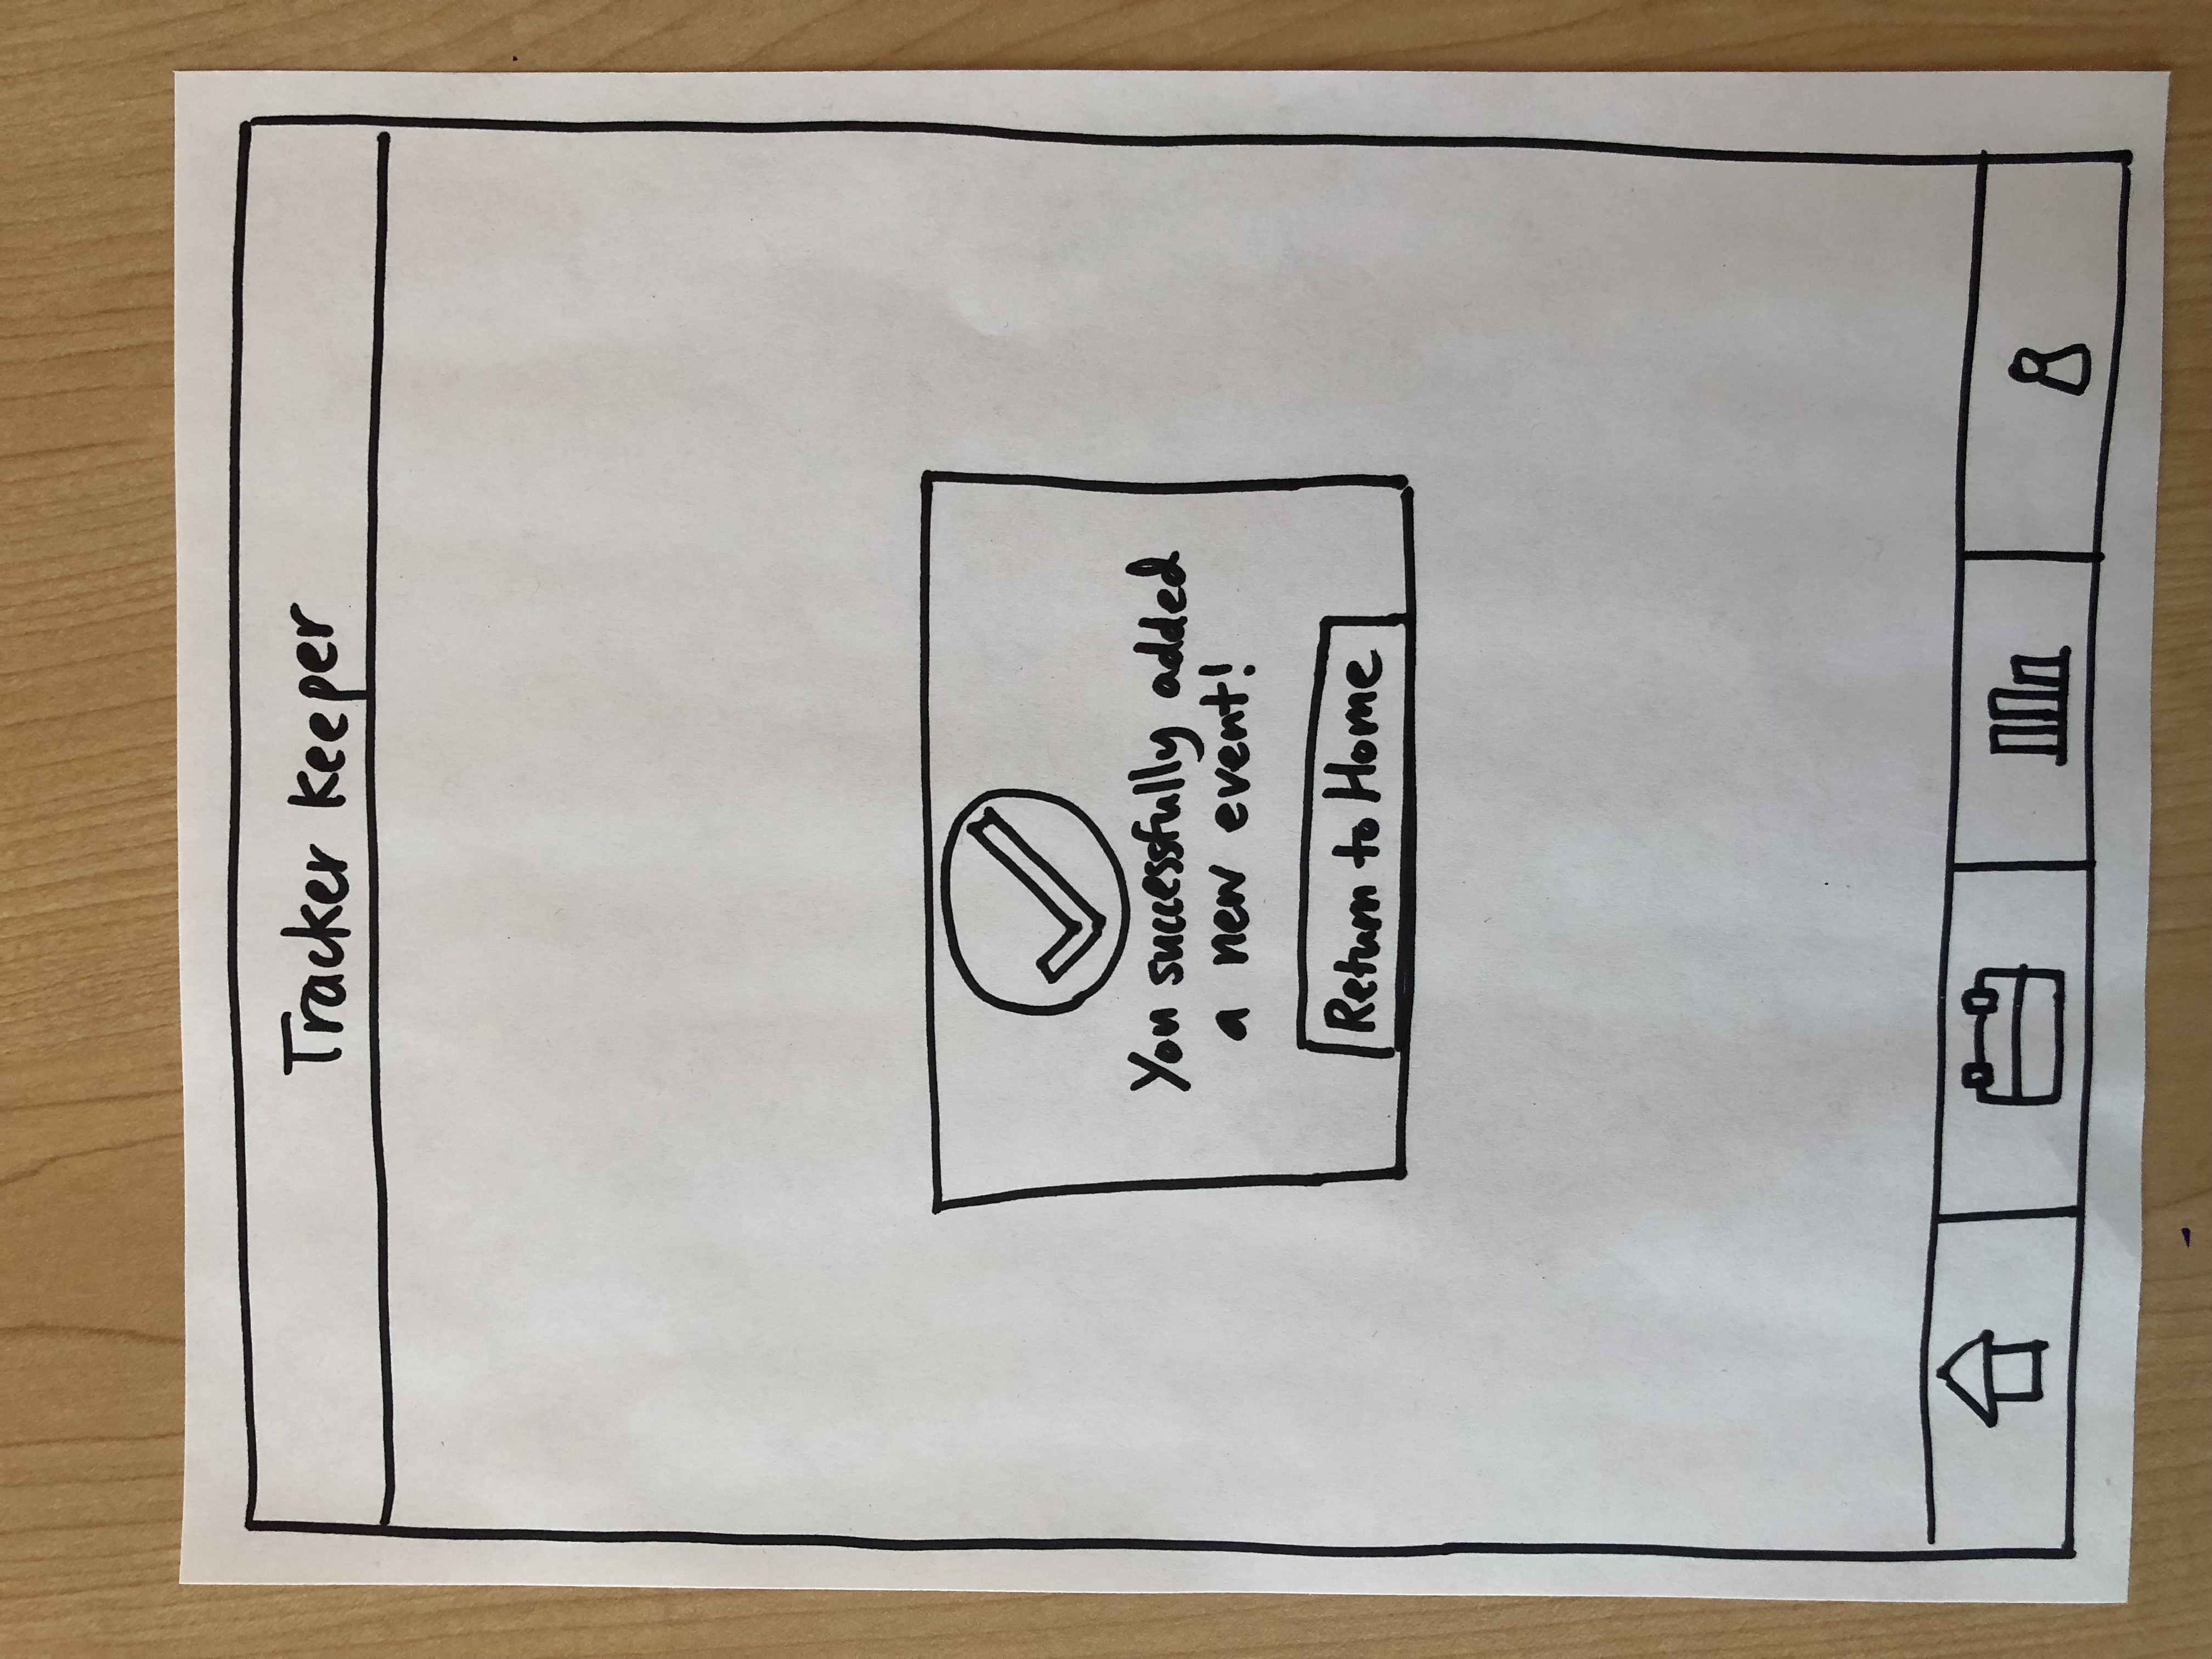 Tracker Keeper
You successfully added
a new event!
Return to Home